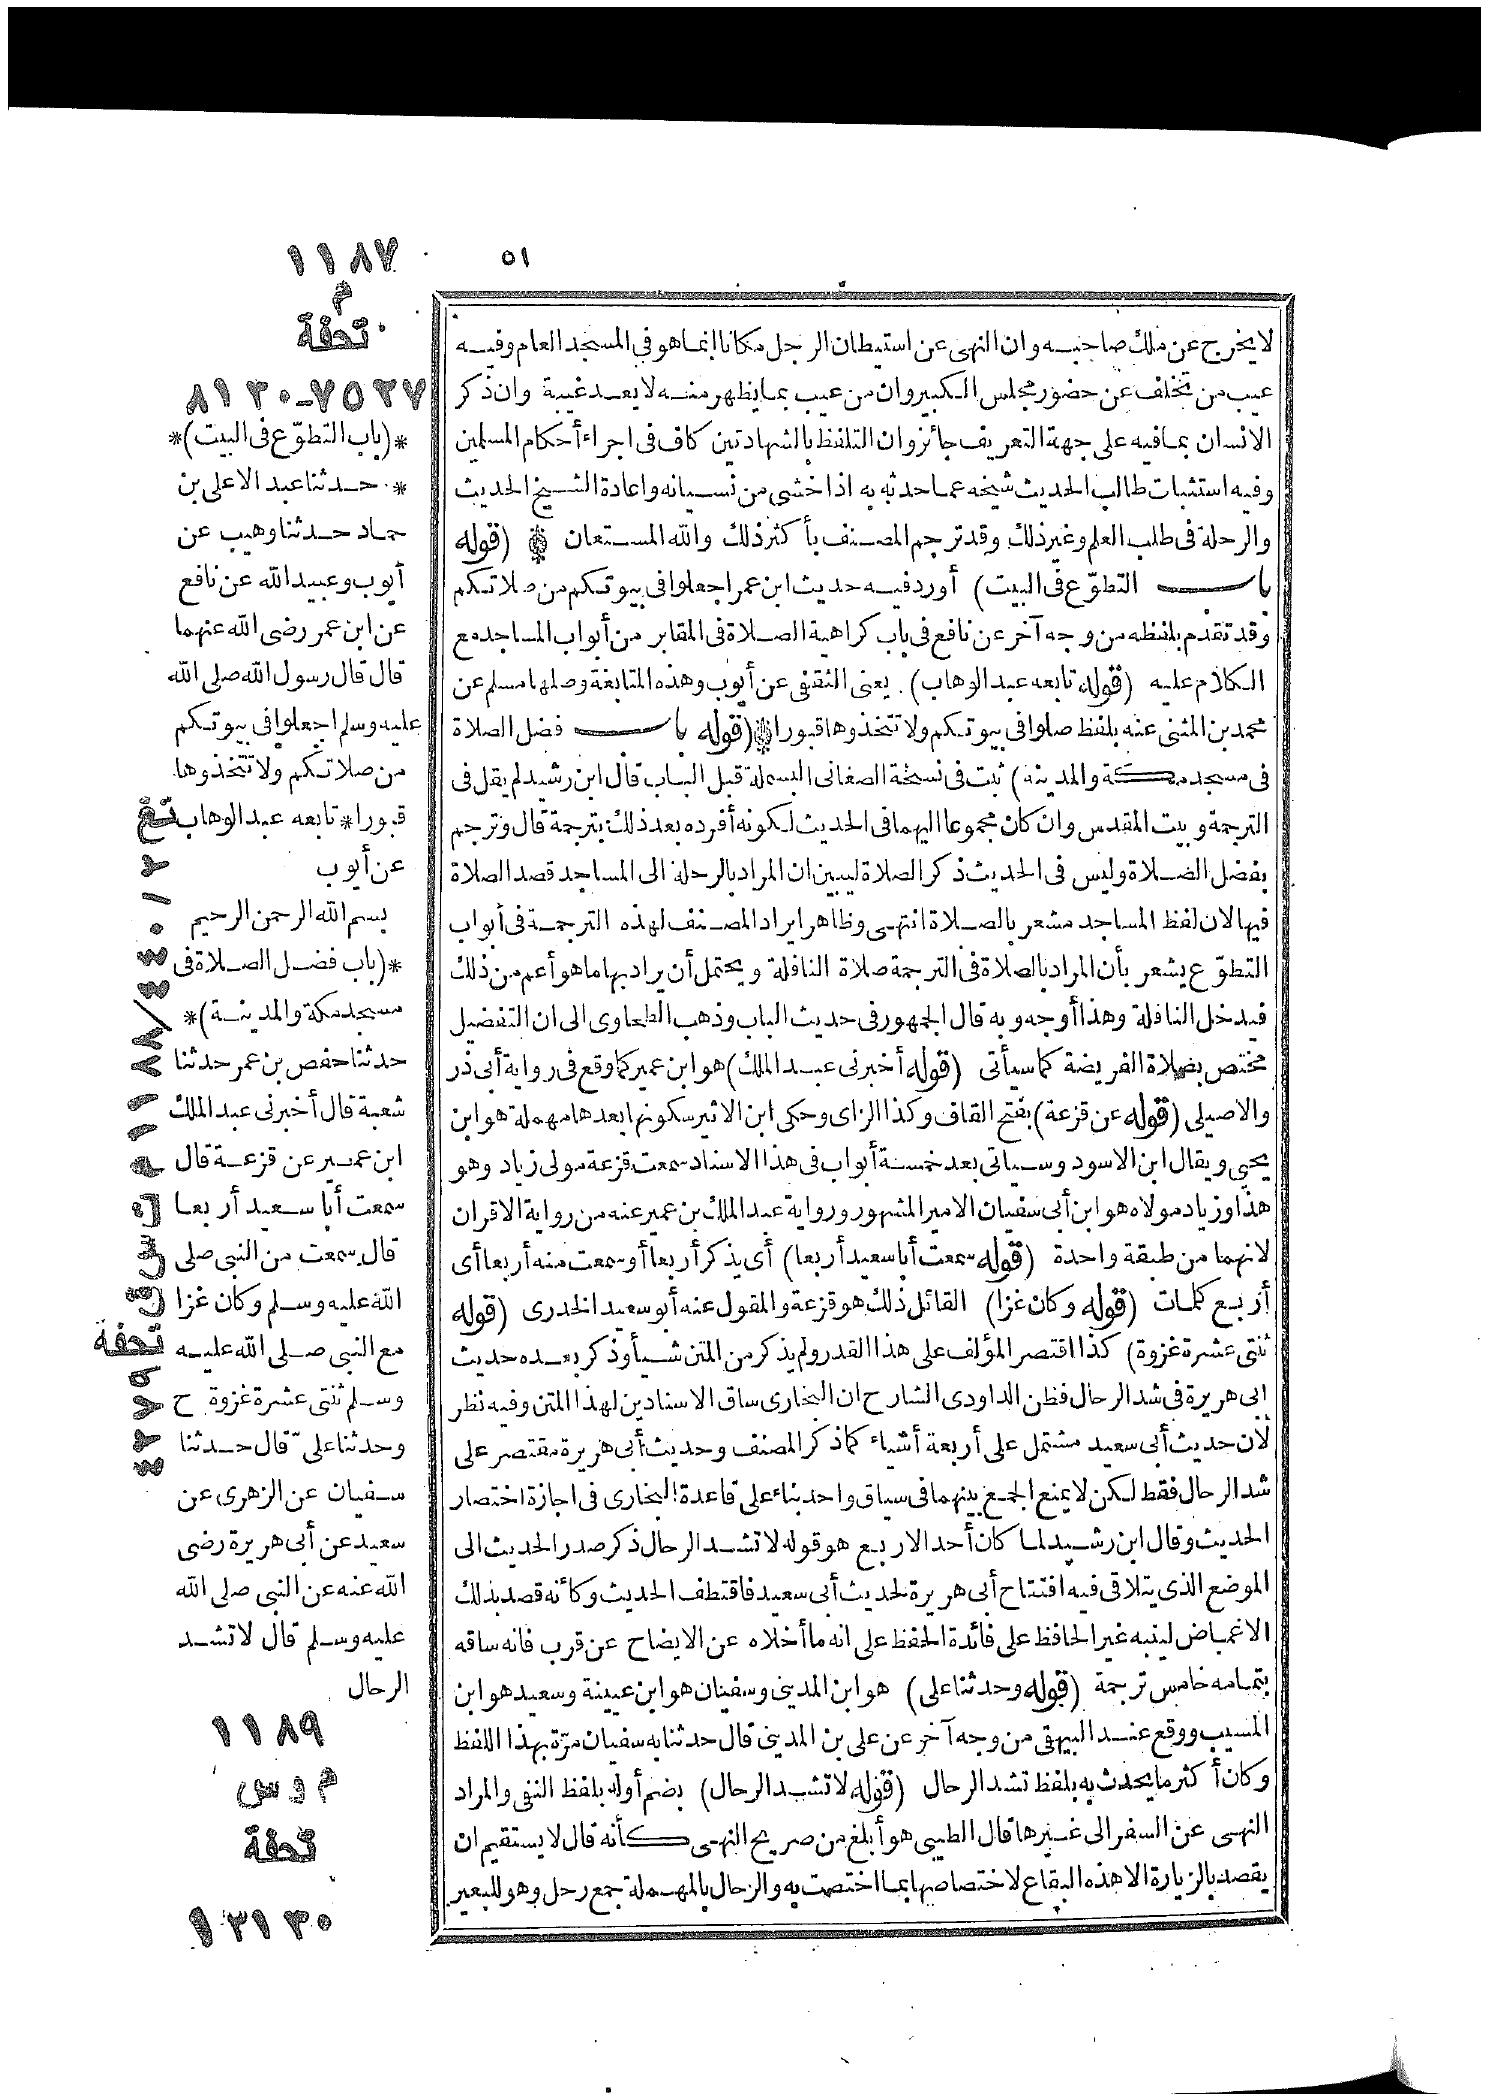 ٥١
لا يخرج عن ملك صاحبه وان النهى عن استيطان الرجل مكانا انما هو فى المسجد العام وفيه
عيب من تخلف عن حضور مجلس الكبير وان من عيب بما يظهر منه لا يعد غيبة وان ذكر
الانسان بما فيه على جهة التعريف جائز وان التلفظ بالشهادتين كاف فى اجراء أحكام المسلمين
وفيه استثبات طالب الحديث شيخه عما حدثه به اذا خشى من نسيانه واعادة الشيخ الحديث
والرحلة فى طلب العلم وغير ذلك وقد ترجم المصنف بأكثر ذلك والله المستعان ﴿ (قوله
باب التطوّع فى البيت) أورد فيه حديث ابن عمر اجعلوا فى بيوتكم من صلاتكم
وقد تقدم بلفظه من وجه آخر عن نافع فى باب كراهية الصلاة فى المقابر من أبواب المساجد مع
الكلام عليه (قوله تابعه عبد الوهاب) يعنى الثقفى عن أيوب وهذه المتابعة وصلها مسلم عن
محمد بن المثنى عنه بلفظ صلوا فى بيوتكم ولا تتخذوها قبورا ﴿ (قوله باب فضل الصلاة
فى مسجد مكة والمدينة) ثبت فى نسخة الصغانى البسملة قبل الباب قال ابن رشيد لم يقل فى
الترجمة وبيت المقدس وان كان مجموعا اليهما فى الحديث لكونه أفرده بعد ذلك بترجمة قال وترجم
بفضل الصلاة وليس فى الحديث ذكر الصلاة ليبين ان المراد بالرحلة الى المساجد قصد الصلاة
فيها لان لفظ المساجد مشعر بالصلاة انتهى وظاهر ايراد المصنف لهذه الترجمة فى أبواب
التطوّع يشعر بأن المراد بالصلاة فى الترجمة صلاة النافلة ويحتمل أن يراد بها ما هو أعم من ذلك
فيدخل النافلة وهذا أوجه وبه قال الجمهور فى حديث الباب وذهب الطحاوى الى ان التفضيل
مختص بصلاة الفريضة كما سيأتى (قوله أخبرنى عبد الملك) هو ابن عمير كما وقع فى رواية أبى ذر
والاصيلى (قوله عن قزعة) بفتح القاف وكذا الزاى وحكى ابن الاثير سكونها بعدها مهملة هو ابن
يحيى ويقال ابن الاسود وسيأتى بعد خمسة أبواب فى هذا الاسناد سمعت قزعة مولى زياد وهو
هذا وزياد مولاه هو ابن أبى سفيان الامير المشهور ورواية عبد الملك بن عمير عنه من رواية الاقران
لانهما من طبقة واحدة (قوله سمعت أبا سعيد أربعا) أى يذكر أربعا أو سمعت منه أربعا أى
أربع كلمات (قوله وكان غزا) القائل ذلك هو قزعة والمقول عنه أبو سعيد الخدرى (قوله
ثنتى عشرة غزوة) كذا اقتصر المؤلف على هذا القدر ولم يذكر من المتن شيأ وذكر بعده حديث
ابى هريرة فى شد الرحال فظن الداودى الشارح ان البخارى ساق الاسنادين لهذا المتن وفيه نظر
لأن حديث أبى سعيد مشتمل على أربعة أشياء كما ذكر المصنف وحديث أبى هريرة مقتصر على
شد الرحال فقط لكن لا يمنع الجمع بينهما فى سياق واحد بناء على قاعدة البخارى فى اجازة اختصار
الحديث وقال ابن رشيد لما كان أحد الاربع هو قوله لا تشد الرحال ذكر صدر الحديث الى
الموضع الذى يتلاقى فيه افتتاح أبى هريرة لحديث أبى سعيد فاقتطف الحديث وكأنه قصد بذلك
الاغماض لينبه غير الحافظ على فائدة الحفظ على انه ما أخلاه عن الايضاح عن قرب فانه ساقه
بتمامه خامس ترجمة (قوله وحدثنا على) هو ابن المدينى وسفيان هو ابن عيينة وسعيد هو ابن
المسيب ووقع عند البيهقى من وجه آخر عن على بن المدينى قال حدثنا به سفيان مرّة بهذا اللفظ
وكان أكثر ما يحدث به بلفظ تشد الرحال (قوله لا تشد الرحال) بضم أوله بلفظ النفى والمراد
النهى عن السفر الى غيرها قال الطيبى هو أبلغ من صريح النهى كأنه قال لا يستقيم ان
يقصد بالزيارة الا هذه البقاع لاختصاصها بما اختصت به والرحال بالمهملة جمع رحل وهو للبعير
١١٨٧
م
تحفة
٧٥٢٧-٨١٣٠
*(باب التطوّع فى البيت)*
* حدثنا عبد الاعلى بن
حماد حدثنا وهيب عن
أيوب وعبيد الله عن نافع
عن ابن عمر رضى الله عنهما
قال قال رسول الله صلى الله
عليه وسلم اجعلوا فى بيوتكم
من صلاتكم ولا تتخذوها
قبورا * تابعه عبد الوهاب
عن أيوب
بسم الله الرحمن الرحيم
*(باب فضل الصلاة فى
مسجد مكة والمدينة)*
حدثنا حفص بن عمر حدثنا
شعبة قال أخبرنى عبد الملك
ابن عمير عن قزعة قال
سمعت أبا سعيد أربعا
قال سمعت من النبى صلى
الله عليه وسلم وكان غزا
مع النبى صلى الله عليه
وسلم ثنتى عشرة غزوة ح
وحدثنا علىّ قال حدثنا
سفيان عن الزهرى عن
سعيد عن أبى هريرة رضى
الله عنه عن النبى صلى الله
عليه وسلم قال لا تشد
الرحال
١١٨٩
م و س
تحفة
١٣١٣٠
تغ
١١٨٨
م ت س ق
تحفة
٤٢٧٩